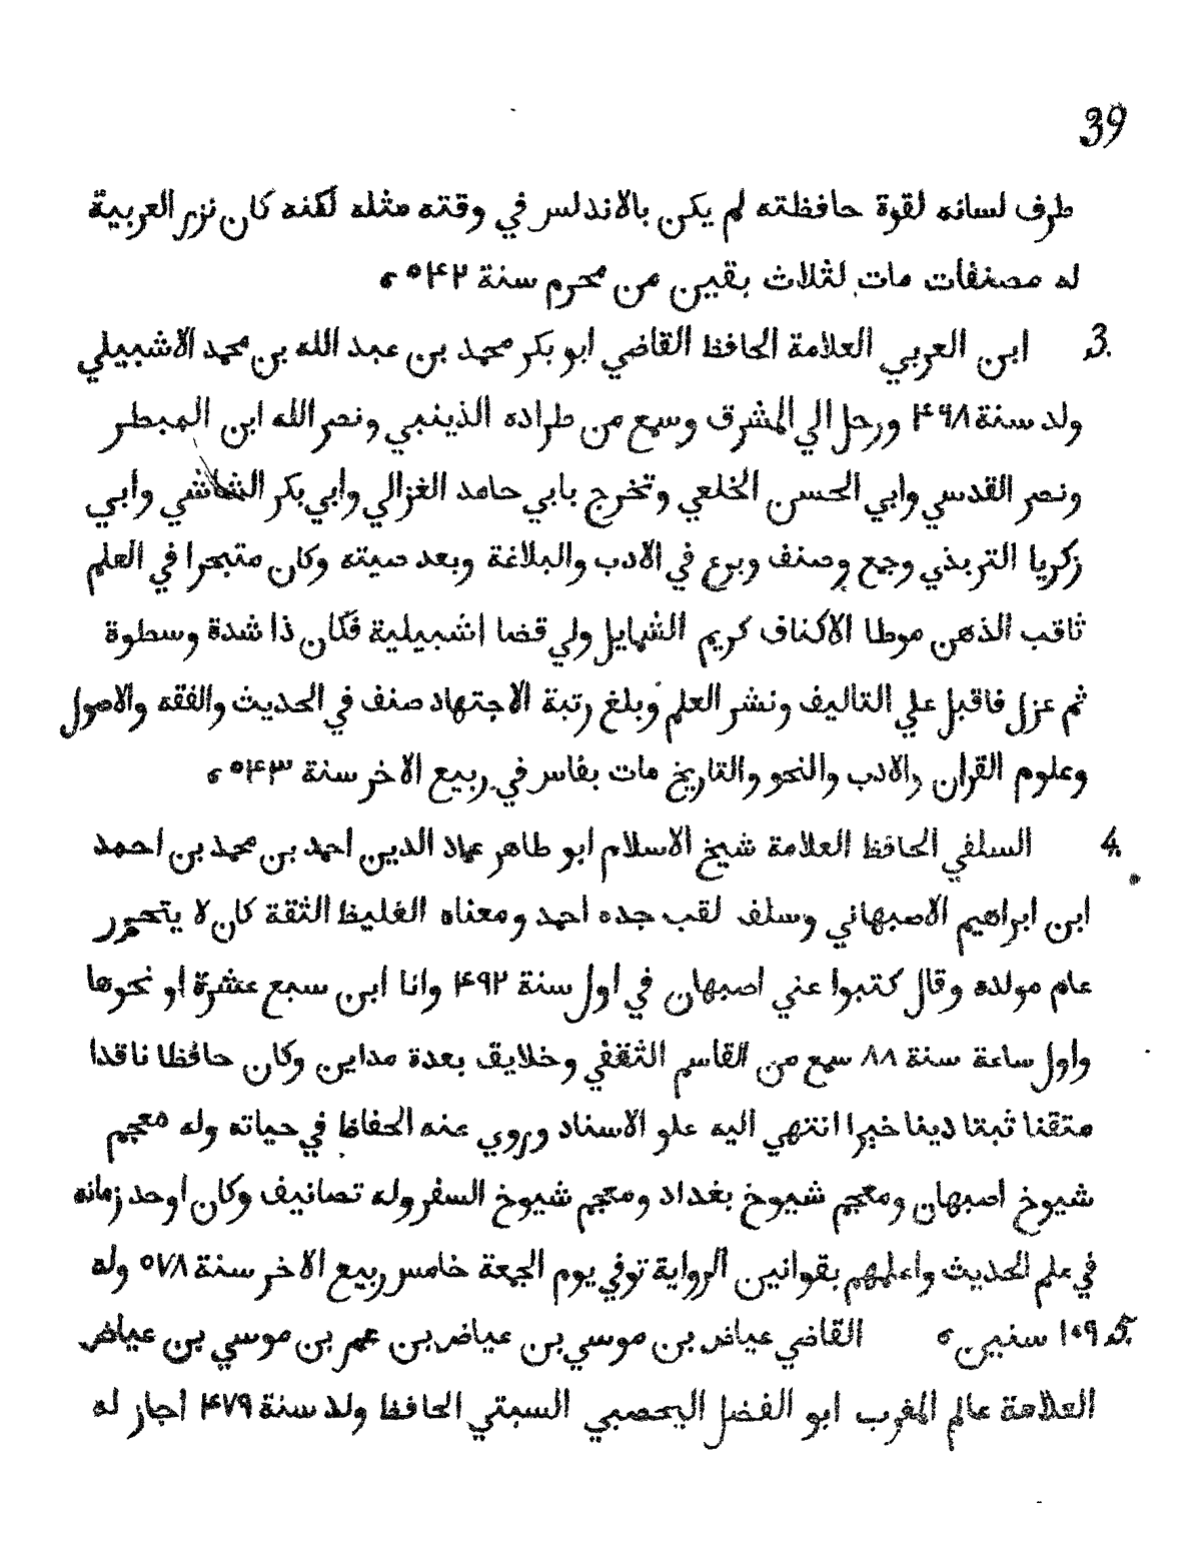 39
طرف لسانه لقوة حافظته لم يكن بالاندلس في وقته مثله لكنه كان نزر العربية
له مصنفات مات لثلاث بقين من محرم سنة ۵۴۲ ه
3. ابن العربي العلامة الحافظ القاضي ابو بكر محمد بن عبد الله بن محمد الاشبيلي
ولد سنة ۴۹۸ ورحل الي المشرق وسمع من طراده الذينبي ونصر الله ابن المبطر
ونصر القدسي وابي الحسن الخلعي وتخرج بابي حامد الغزالي وابي بكر الشاشي وابي
زكريا التربذي وجمع وصنف وبرع في الادب والبلاغة وبعد صيته وكان متبحرا في العلم
ثاقب الذهن موطا الاكناف كريم الشمايل ولي قضا اشبيلية فكان ذا شدة وسطوة
ثم عزل فاقبل علي التاليف ونشر العلم وبلغ رتبة الاجتهاد صنف في الحديث والفقه والاصول
وعلوم القران والادب والنحو والتاريخ مات بفاس في ربيع الاخر سنة ۵۴۳ ه
4. السلفي الحافظ العلامة شيخ الاسلام ابو طاهر عماد الدين احمد بن محمد بن احمد
ابن ابراهيم الاصبهاني وسلف لقب جده احمد ومعناه الغليظ الثقة كان لا يتحرر
عام مولده وقال كتبوا عني اصبهان في اول سنة ۴۹۲ وانا ابن سبع عشرة او نحوها
واول ساعة سنة ۸۸ سمع من القاسم الثقفي وخلايق بعدة مداين وكان حافظا ناقدا
متقنا ثبتا دينا خيرا انتهي اليه علو الاسناد وروي عنه الحفاظ في حياته وله معجم
شيوخ اصبهان ومعجم شيوخ بغداد ومعجم شيوخ السفر وله تصانيف وكان اوحد زمانه
في علم الحديث واعلمهم بقوانين الرواية توفي يوم الجمعة خامس ربيع الاخر سنة ۵۷۸ وله
5. ۱۰۹ سنين ه القاضي عياض بن موسي بن عياض بن عمر بن موسي بن عياض
العلامة عالم المغرب ابو الفضل اليحصبي السبتي الحافظ ولد سنة ۴۷۹ اجاز له